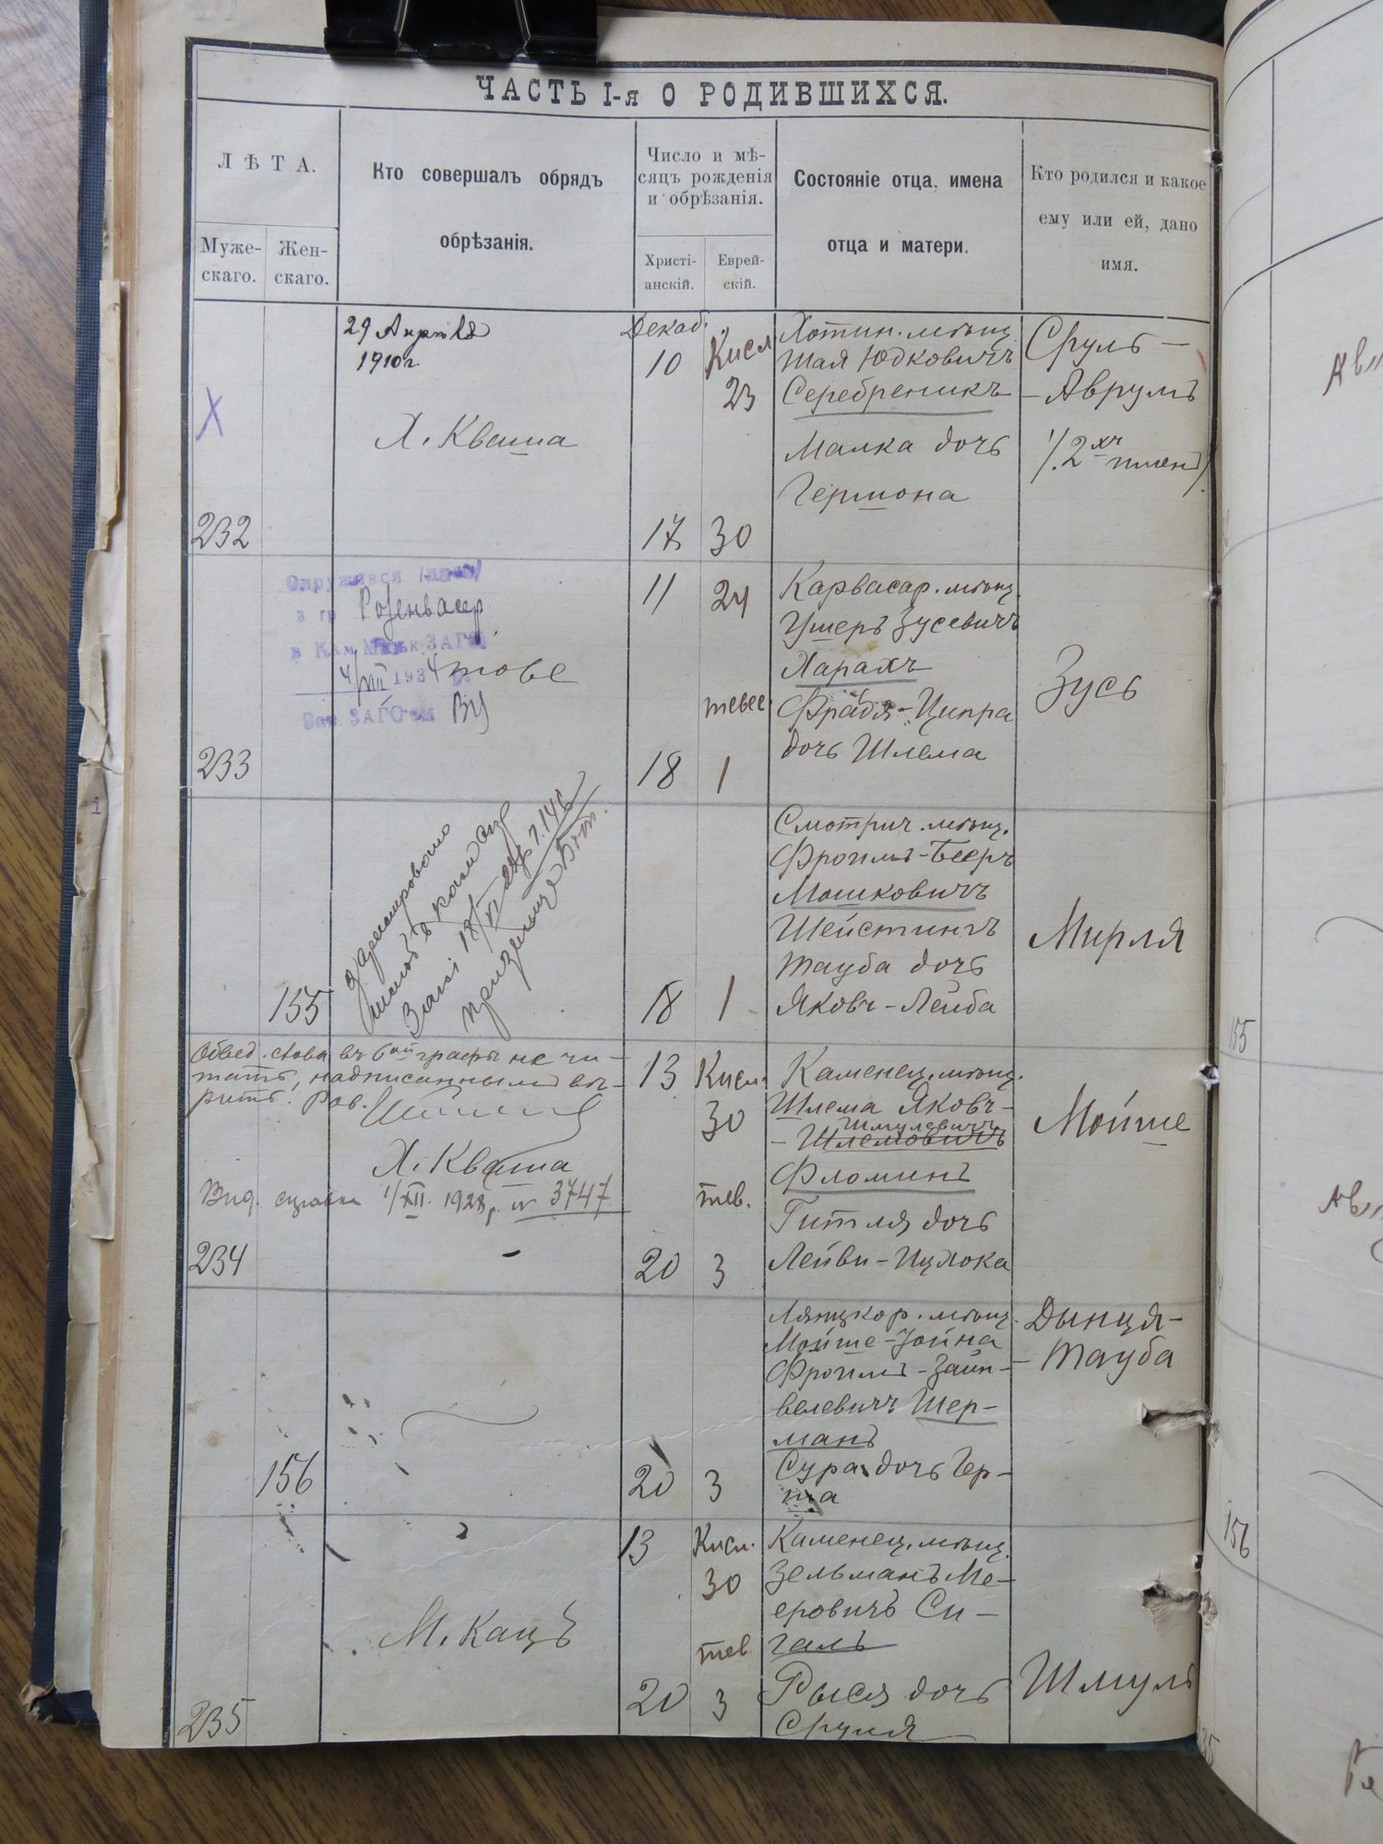 ЧАСТЬ I-я О РОДИВШИХСЯ.
ЛѢТА.
Муже-
скаго.
Жен-
скаго.
Кто совершалъ обрядъ
обрѣзанія.
Число и мѣ-
сяцъ рожденія
и обрѣзанія.
Христі-
анскій.
Еврей-
скій.
Состояніе отца, имена
отца и матери.
Кто родился и какое
ему или ей, дано
имя.
29 Апрѣля
1910 г
Х. Кваша
232
Декаб.
10
Кисл
23
17
30
Хотин. мѣщ.
Шая Юдковичъ
Серебреникъ
Малка дочь
Гершона
Сруль-
-Аврумъ
/.2хъ имен./
Одружився
з гр Розенвасер
в Кам. Міськ ЗАГС
4/XII 1934
Зав ЗАГСом
тоже
233
11
24
тевес
18
1
Карвасар. мѣщ.
Ушеръ Зусевичъ
Харахъ
Фрадя-Ципра
дочь Шлема
Зусь
155
18
1
Смотрич. мѣщ.
Фроимъ-Бееръ
Мошковичъ
Шейстингъ
Тауба дочь
Яковъ-Лейба
Мирля
Обвед. слова въ 6ой графы не чи-
тать, надписанными вѣ-
рить. Рав.
Х. Кваша
Вид. справка 1/XII. 1928 р. № 3747
234
13
Кисл.
30
тев.
20
3
Каменец. мѣщ.
Шлема Яковъ-
Шмулевичъ
-Шлемовичъ
Фломинъ
Гитля дочь
Лейви-Ицхока
Мойше
156
20
3
Лянцкор. мѣщ.
Мойше-Іойна
Фроимъ-Зайн-
велевичъ Шер-
манъ
Сура дочь Гер-
ша
Дынця-
-Тауба
М. Кацъ
235
13
Кисл.
30
тев
20
3
Каменец. мѣщ.
Зельманъ Ме-
еровичъ Си-
галъ
Рыся дочь
Сруля
Шмуль
155
156